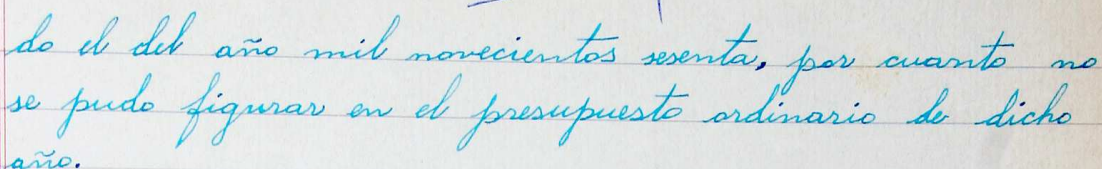 do el del año mil novecientos sesenta, por cuanto no
se pudo figurar en el presupuesto ordinario de dicho
año.